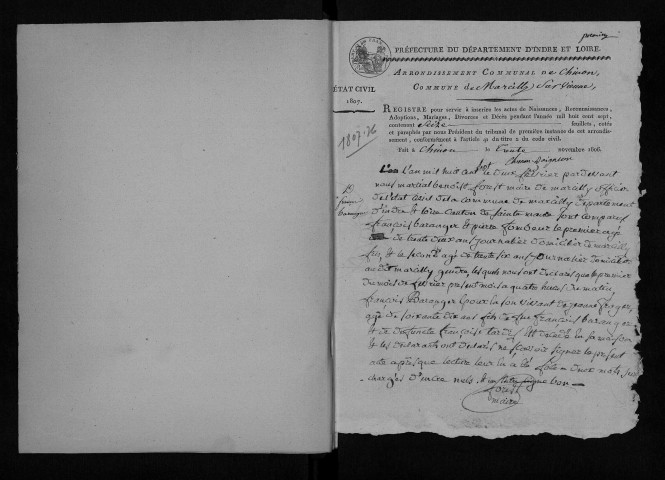 premier
PRÉFECTURE DU DÉPARTEMENT D'INDRE ET LOIRE.
ARRONDISSEMENT COMMUNAL DE Chinon,
COMMUNE de Marcilly Sur Vienne,
ÉTAT CIVIL
1807.
REGISTRE pour servir à inscrire les actes de Naissances, Reconnaissances,
Adoptions, Mariages, Divorces et Décès pendant l'année mil huit cent sept,
contenant Seize feuillets, cotés
et paraphés par nous Président du tribunal de première instance de cet arrondis-
sement, conformément à l'article 41 du titre 2 du code civil.
Fait à Chinon le trente novembre 1806.
1807.16
L'an mil huit cent sept le deux février par devant
nous martial benoist maire de marcilly officier
de l'état civil de la commune de marcilly departement
d'indre et loire canton de sainte maure sont comparus
françois baranger et pierre le premier agé
de trente deux ans journalier domicilier de marcilly
fils, et le second agé de trente six ans journalier domicilier
au dit marcilly gendre, lesquels nous ont declarés que le premier
du mois de février present mois a quatre heures du matin
françois Baranger epoux de son vivant de jeanne
agé de soixante dix ans fils de feu françois baranger
et de defuncte françoise est décédé en sa maison
et les declarants ont declarés ne sçavoir signer le present
acte apres que lecture leur en a été faite deux mots
chargés d'encre nuls
maire